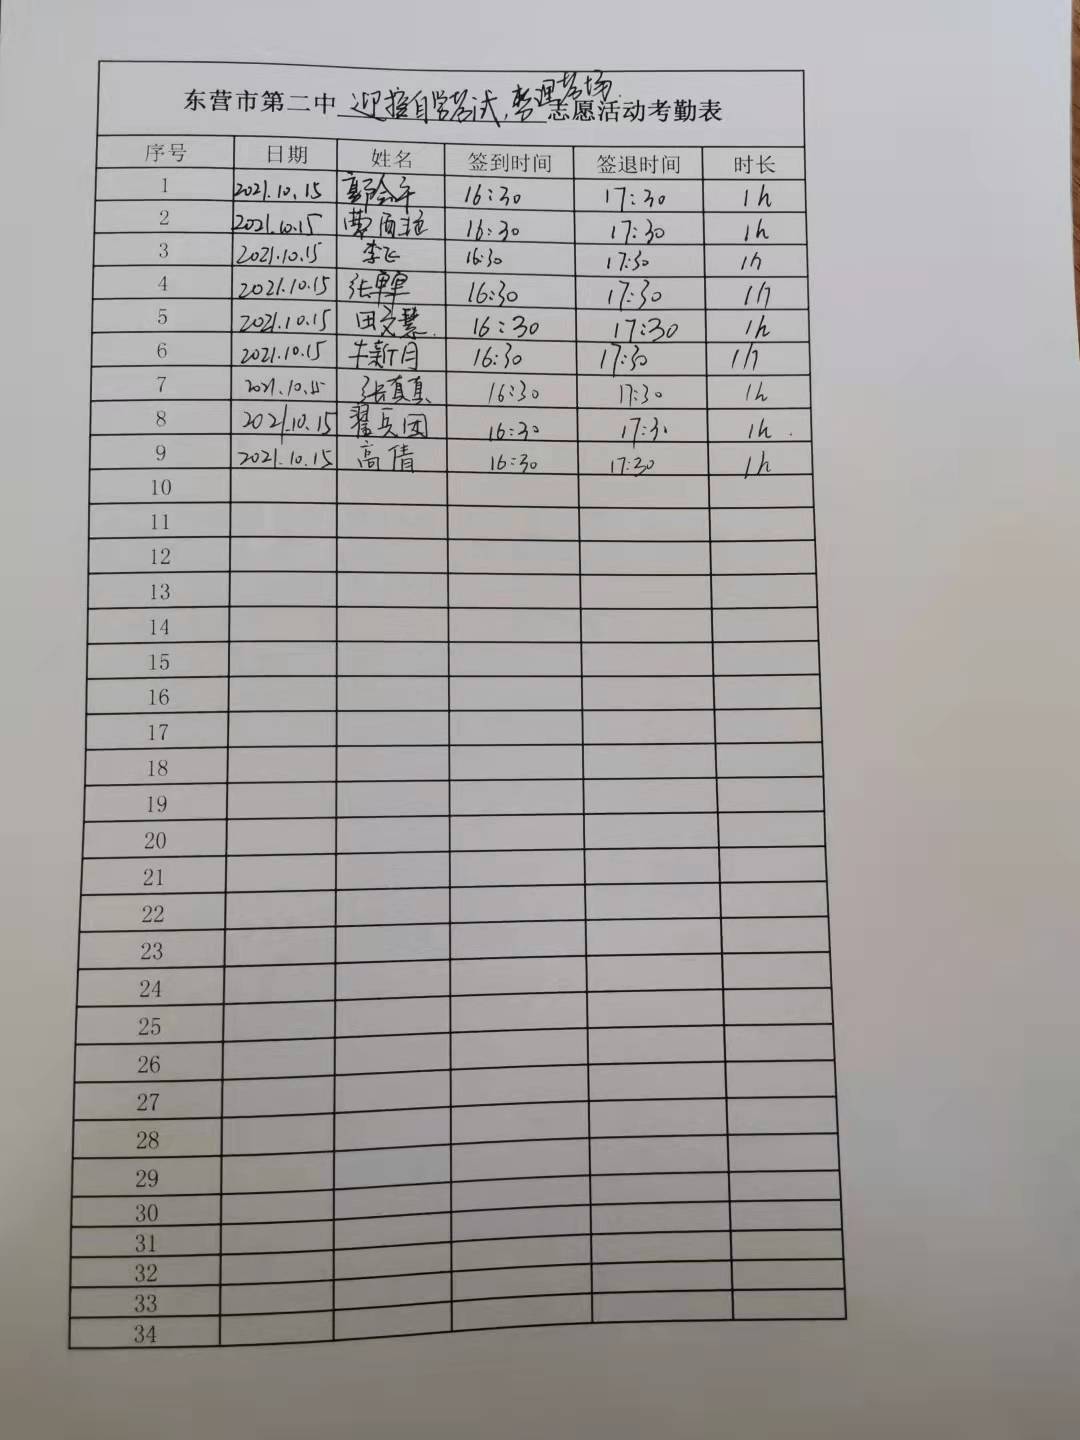 东营市第二中 迎接自学考试，整理考场 志愿活动考勤表
序号 日期 姓名 签到时间 签退时间 时长
1 2021.10.15 16:30 17:30 1h
2 2021.10.15 16:30 17:30 1h
3 2021.10.15 李飞 16:30 17:30 1h
4 2021.10.15 16:30 17:30 1h
5 2021.10.15 田文慧 16:30 17:30 1h
6 2021.10.15 牛新月 16:30 17:30 1h
7 2021.10.15 张真真 16:30 17:30 1h
8 2021.10.15 翟兵团 16:30 17:30 1h
9 2021.10.15 高倩 16:30 17:30 1h
10
11
12
13
14
15
16
17
18
19
20
21
22
23
24
25
26
27
28
29
30
31
32
33
34